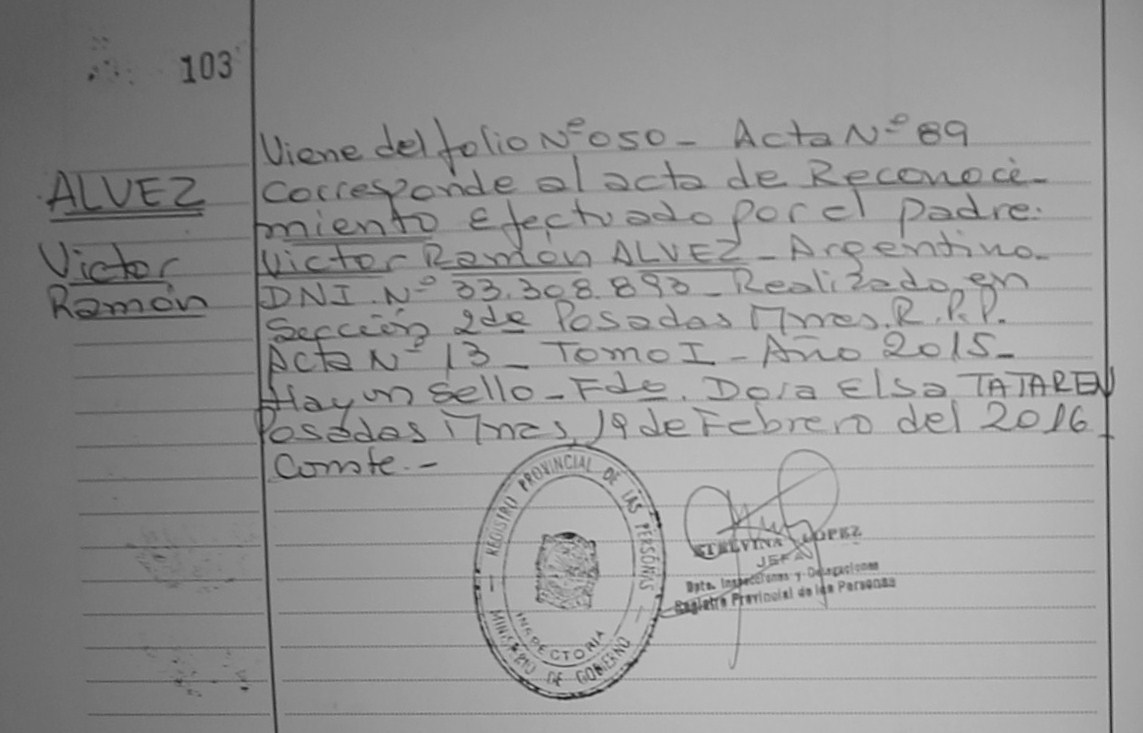 103
ALVEZ
Victor
Ramón
Viene del folio Nº 050 - Acta Nº 89
Corresponde al acta de Reconoci-
miento efectuado por el padre:
Victor Ramón ALVEZ - Argentino.
DNI. Nº 33.308.893 - Realizado en
Sección 2da Posadas Mnes. R.P.P.
Acta Nº 13 - Tomo I - Año 2015 -
Hay un sello - Fdo. Dora Elsa TATAREN
Posadas Mnes, 19 de Febrero del 2016
Conste. -
REGISTRO PROVINCIAL DE LAS PERSONAS
INSPECTORIA
MINISTERIO DE GOBIERNO
LOPEZ
JEFA
Dpto. Inspecciones y Delegaciones
Registro Provincial de las Personas